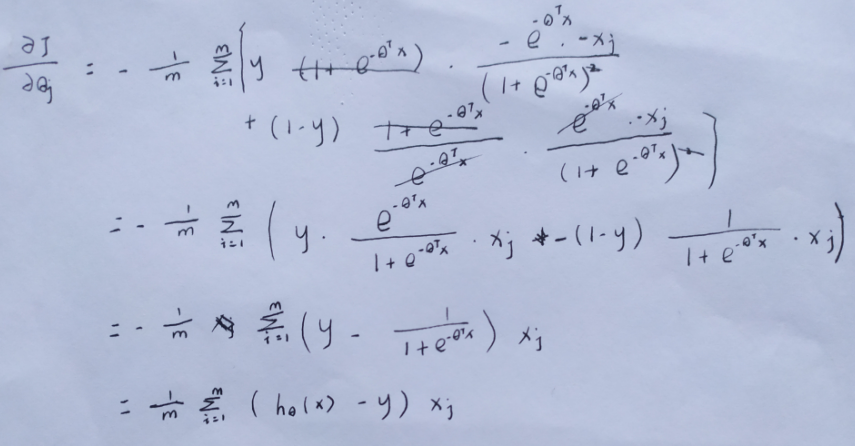 ∂J/∂θj = - 1/m Σ_{i=1}^{m} [ y (1 + e^{-θ^T x}) · (- e^{-θ^T x} · -xj) / (1 + e^{-θ^T x})^2
+ (1-y) (1 + e^{-θ^T x}) / e^{-θ^T x} · (e^{-θ^T x} · -xj) / (1 + e^{-θ^T x})^2 ]
= - 1/m Σ_{i=1}^{m} ( y · e^{-θ^T x} / (1 + e^{-θ^T x}) · xj - (1-y) 1 / (1 + e^{-θ^T x}) · xj )
= - 1/m Σ_{i=1}^{m} ( y - 1 / (1 + e^{-θ^T x}) ) xj
= 1/m Σ_{i=1}^{m} ( hθ(x) - y) xj